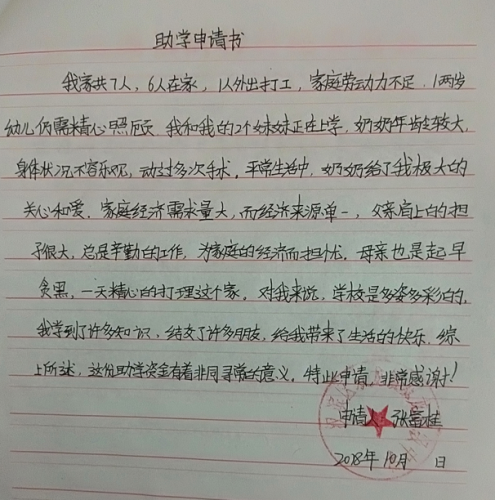 助学申请书
我家共7人，6人在家，1人外出打工，家庭劳动力不足，1两岁
幼儿仍需精心照顾，我和我的2个妹妹正在上学，奶奶年龄较大，
身体状况不容乐观，动过多次手术，平常生活中，奶奶给了我极大的
关心和爱，家庭经济需求量大，而经济来源单一，父亲肩上的担
子很大，总是辛勤的工作，为家庭的经济而担忧，母亲也是起早
贪黑，一天精心的打理这个家，对我来说，学校是多姿多彩的，
我学到了许多知识，结交了许多朋友，给我带来了生活的快乐，综
上所述，这份助学资金有着非同寻常的意义，特此申请，非常感谢！
申请人：张富桂
2018年10月 日